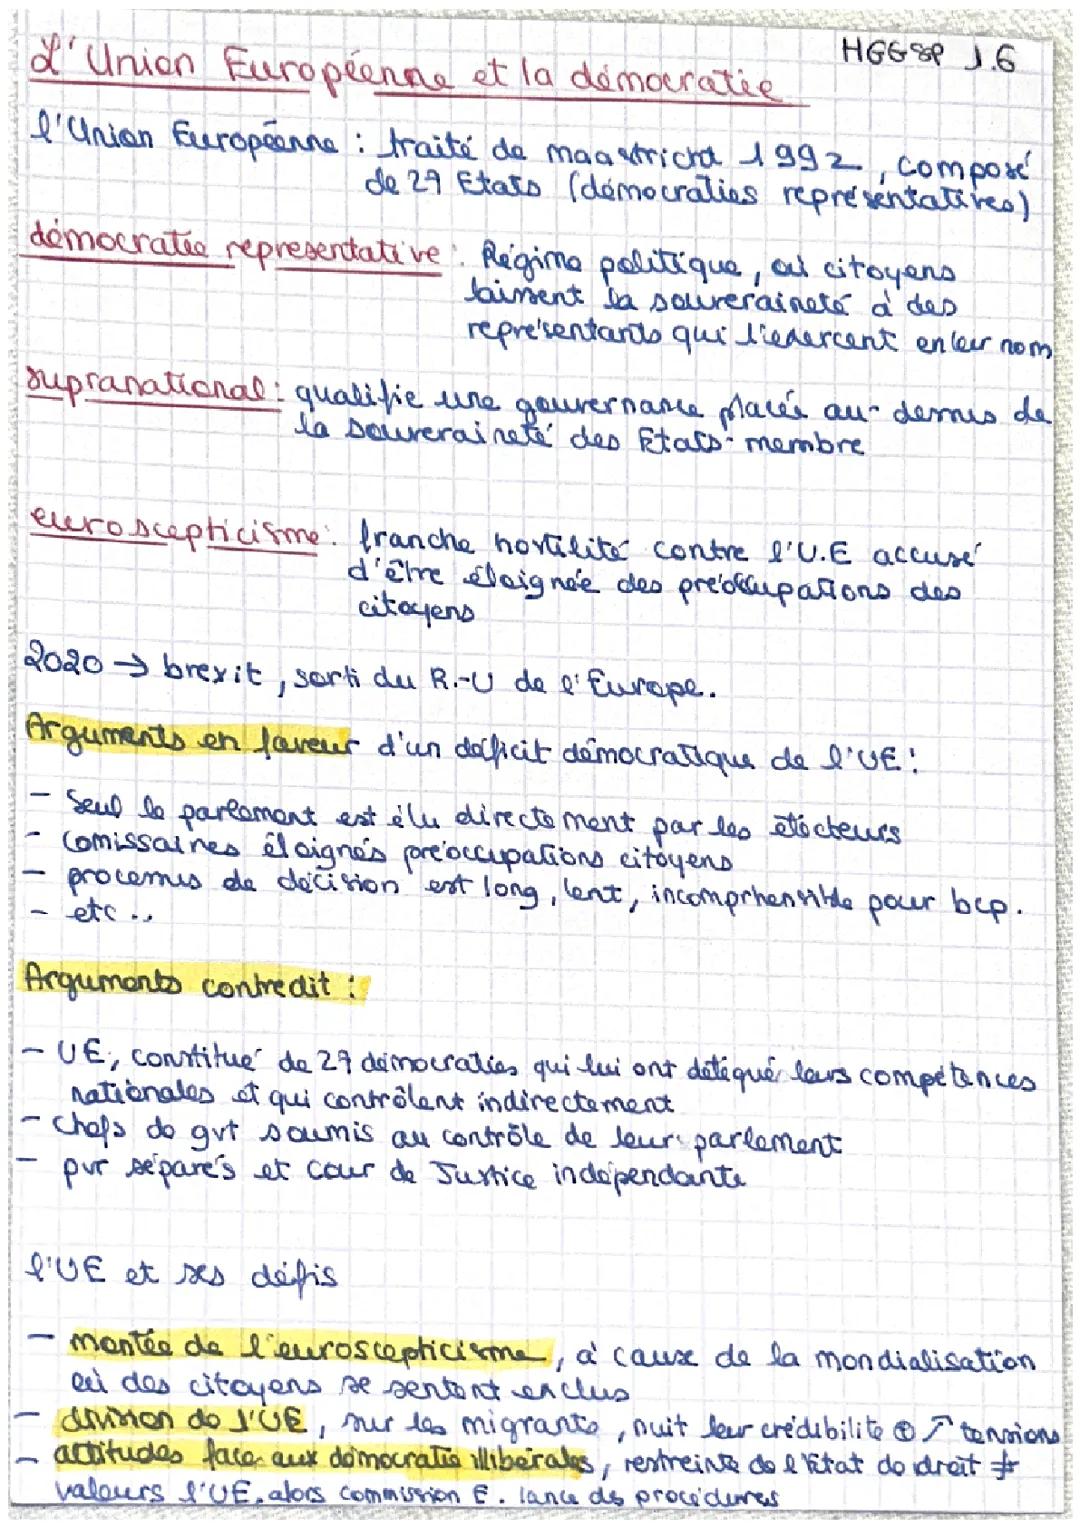 HGGSP J.6
L'Union Européenne et la démocratie
l'Union Européenne : traité de maastricht 1992, composé
de 27 Etats (démocraties représentatives)
démocratie representative : Régime politique, où citoyens
laissent la souveraineté à des
représentants qui l'exercent en leur nom
supranational : qualifie une gouvernance placée au-dessus de
la souveraineté des Etats-membre
euroscepticisme : franche hostilité contre l'U.E accusé
d'être éloignée des préoccupations des
citoyens
2020 → brexit, sorti du R.-U de l'Europe.
Arguments en faveur d'un déficit démocratique de l'UE :
- Seul le parlement est élu directement par les électeurs
- comissaires éloignés préoccupations citoyens
- processus de décision est long, lent, incomprhensible pour bcp.
- etc..
Arguments contredit :
- UE, constitué de 27 démocraties qui lui ont délégué leurs compétences
nationales et qui contrôlent indirectement
- Chefs de gvt soumis au contrôle de leur parlement
- pvr séparés et cour de Justice indépendante
l'UE et ses défis
- montée de l'euroscepticisme, à cause de la mondialisation
où des citoyens se sentent exclus
- division de l'UE, sur les migrants, nuit leur crédibilité ⊕ ↗ tensions
- attitudes face aux démocratie illibérales, restreinte de l'état de droit ≠
valeurs l'UE, alors commission E. lance ds procédures